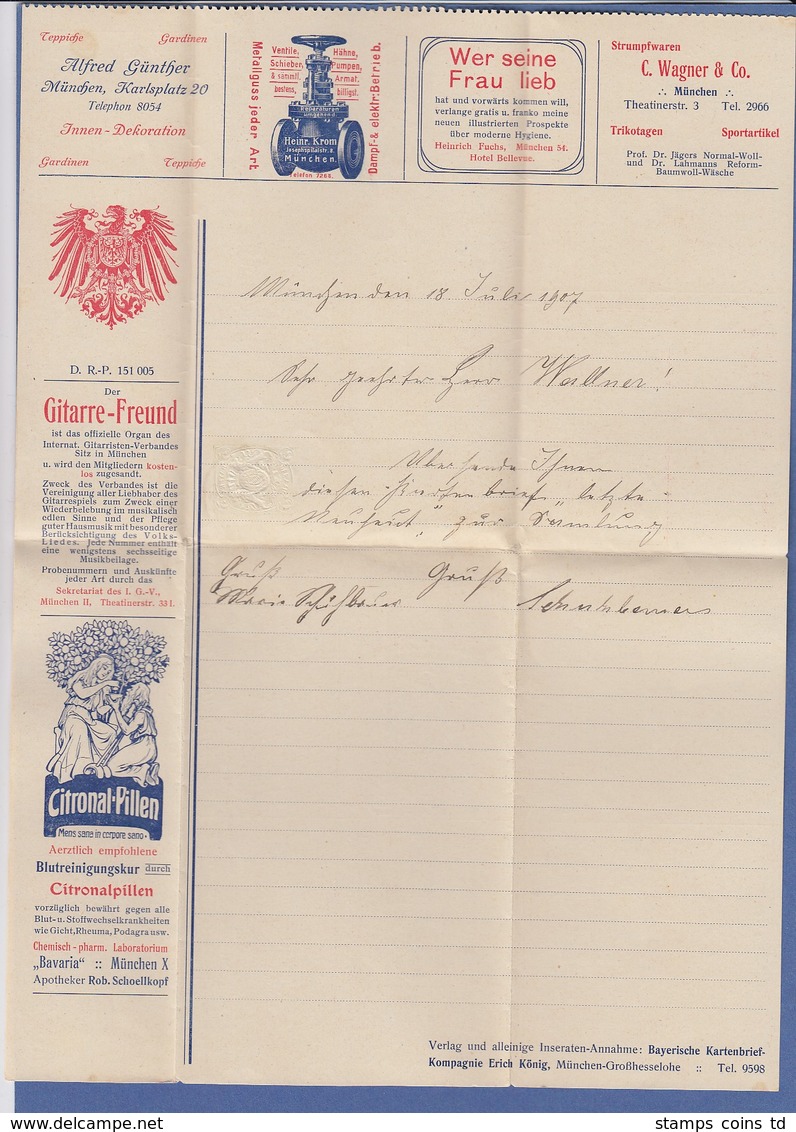 Teppiche Gardinen
Alfred Günther
München, Karlsplatz 20
Telephon 8054
Innen-Dekoration
Gardinen Teppiche
Metallguss jeder Art.
Ventile, Hähne,
Schieber, Pumpen,
& sämmtl. Armat.
bestens, billigst.
Reparaturen
umgehend
Heinr. Krom
Josephspitalstr. 8
München.
Telefon 7268.
Dampf-& elektr: Betrieb.
Wer seine
Frau lieb
hat und vorwärts kommen will,
verlange gratis u. franko meine
neuen illustrierten Prospekte
über moderne Hygiene.
Heinrich Fuchs, München 54.
Hotel Bellevue.
Strumpfwaren
C. Wagner & Co.
∴ München ∴
Theatinerstr. 3 Tel. 2966
Trikotagen Sportartikel
Prof. Dr. Jägers Normal-Woll-
und Dr. Lahmanns Reform-
Baumwoll-Wäsche
D. R.-P. 151 005
Der
Gitarre-Freund
ist das offizielle Organ des
Internat. Gitarristen-Verbandes
Sitz in München
u. wird den Mitgliedern kosten-
los zugesandt.
Zweck des Verbandes ist die
Vereinigung aller Liebhaber des
Gitarrespiels zum Zweck einer
Wiederbelebung im musikalisch
edlen Sinne und der Pflege
guter Hausmusik mit besonderer
Berücksichtigung des Volks-
Liedes. Jede Nummer enthält
eine wenigstens sechsseitige
Musikbeilage.
Probenummern und Auskünfte
jeder Art durch das
Sekretariat des I. G.-V.,
München II, Theatinerstr. 33 I.
Citronal-Pillen
Mens sana in corpore sano.
Aerztlich empfohlene
Blutreinigungskur durch
Citronalpillen
vorzüglich bewährt gegen alle
Blut- u. Stoffwechselkrankheiten
wie Gicht, Rheuma, Podagra usw.
Chemisch-pharm. Laboratorium
„Bavaria“ :: München X
Apotheker Rob. Schoellkopf
München den 18 Juli 1907
Sehr geehrter Herr Wallner!
Übersende Ihnen
diesen Kartenbrief „letzte
Neuheit“ zur Samlung
Gruß Gruß
Marie
Verlag und alleinige Inseraten-Annahme: Bayerische Kartenbrief-
Kompagnie Erich König, München-Großhesselohe :: Tel. 9598
stamps coins td